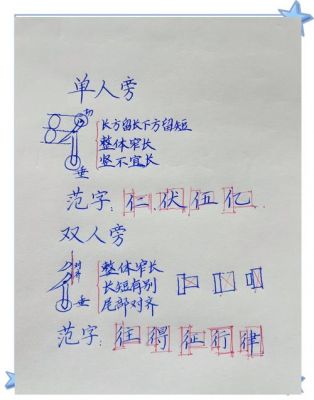 单人旁
切
长方留长下方留短
整体窄长
竖不宜长
垂
范字：仁伏伍亿
双人旁
对齐
整体窄长
长短有别
尾部对齐
垂
范字：往得征行律